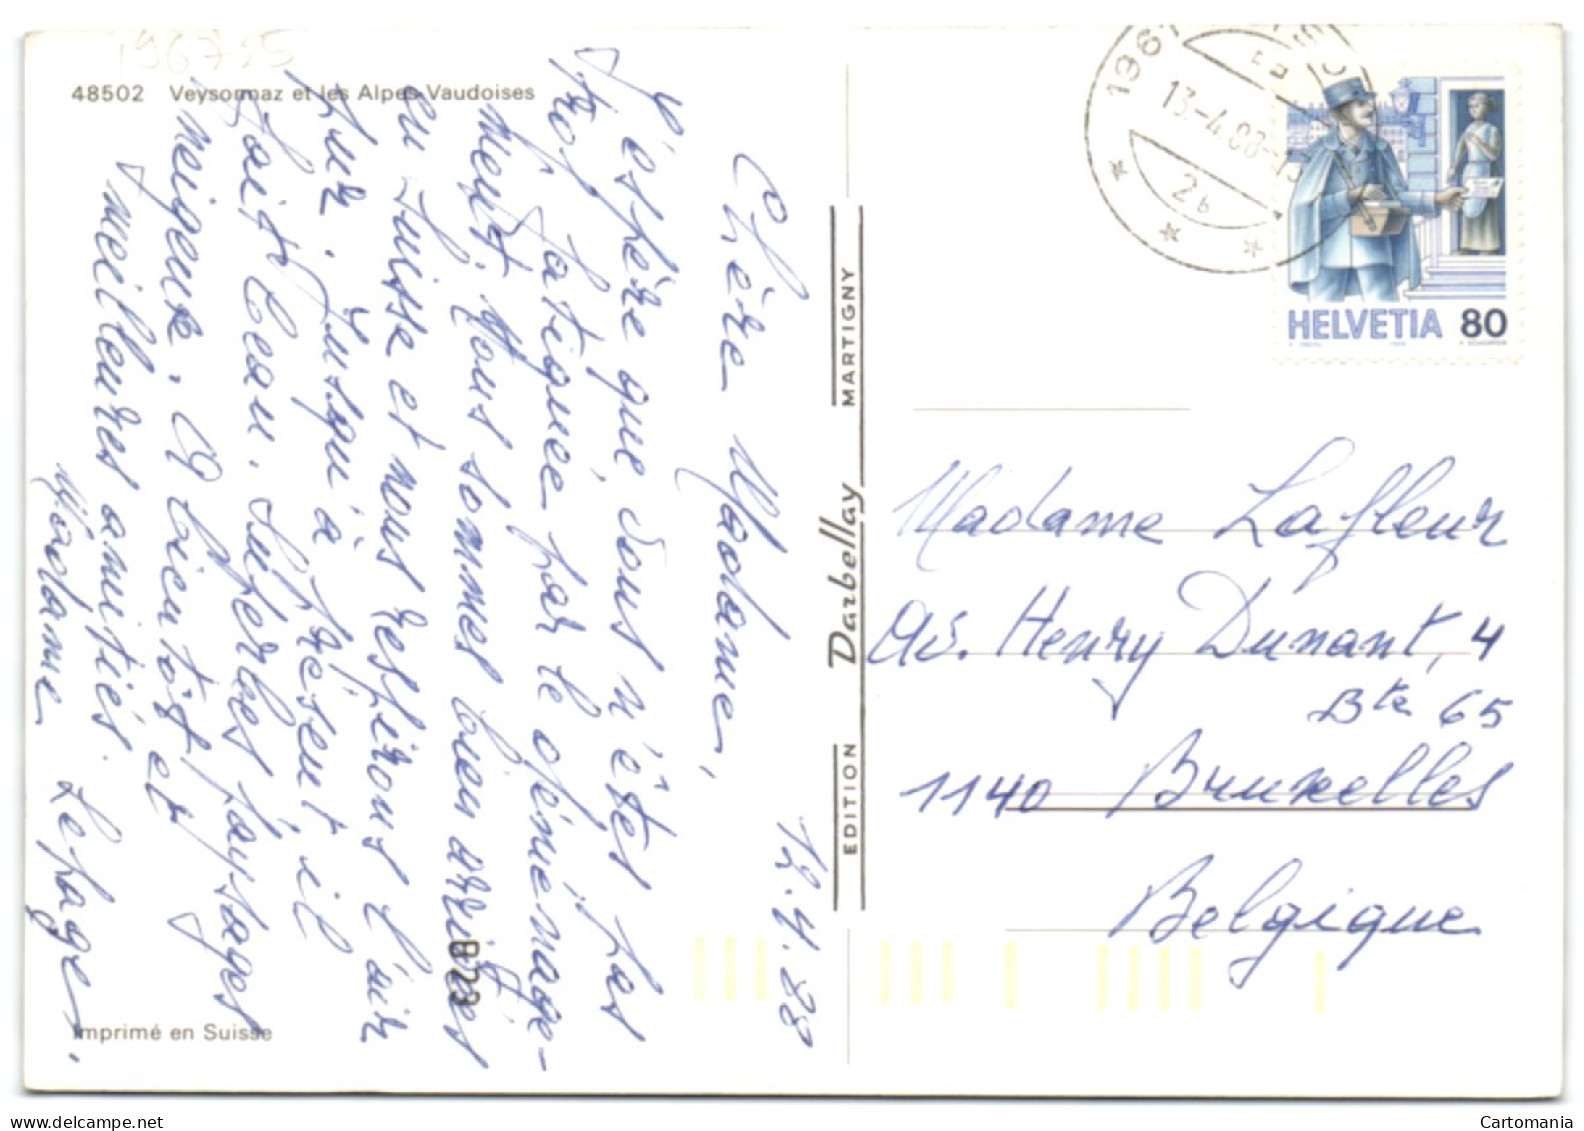 1967:5
48502 Veysonnaz et les Alpes Vaudoises
12.4.88
Chère Madame,
J'espère que vous n'êtes pas
trop fatiguée par le déménage-
ment. Nous sommes bien arrivés
en Suisse et nous respirons l'air
pur. Jusqu'à présent, il
fait beau. Superbes paysages
neigeux. A bientôt et
meilleures amitiés.
Madame Lepage.
8723
Imprimé en Suisse
EDITION Darbellay MARTIGNY
13.-4.88-1
2b
HELVETIA 80
Madame Lafleur
Av. Henry Dunant, 4
Bte 65
1140 Bruxelles
Belgique
Cartomania